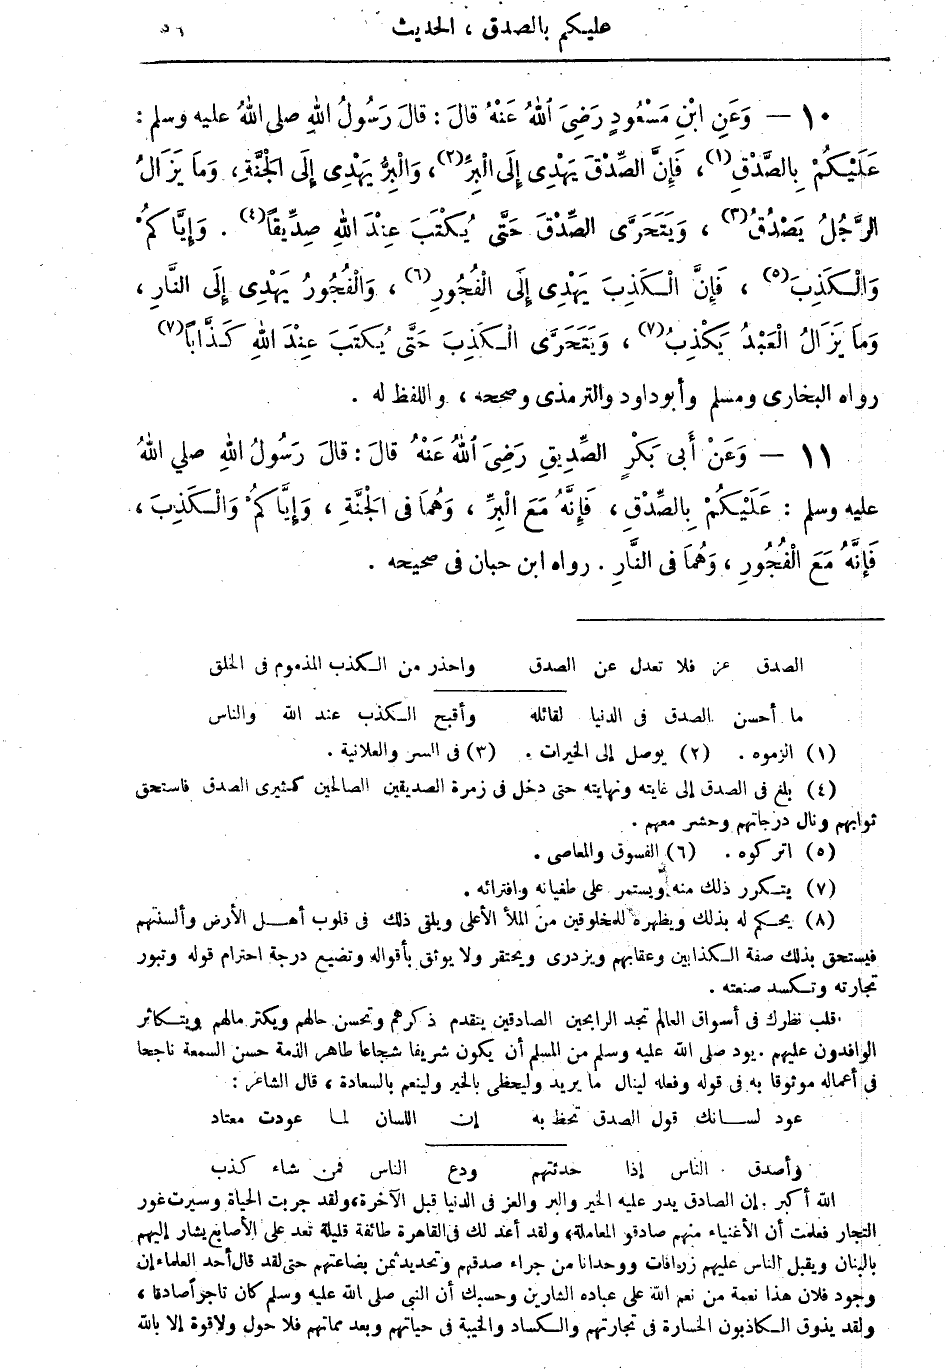 عليكم بالصدق ، الحديث ٥٦
١٠ — وَعَنِ ابْنِ مَسْعُودٍ رَضِيَ اللهُ عَنْهُ قالَ : قالَ رَسُولُ اللهِ صلى اللهُ عليه وسلم :
عَلَيْكُمْ بِالصِّدْقِ(١) ، فَإِنَّ الصِّدْقَ يَهْدِى إِلَى الْبِرِّ(٢) ، وَالْبِرُّ يَهْدِى إِلَى الْجَنَّةِ ، وَمَا يَزَالُ
الرَّجُلُ يَصْدُقُ(٣) ، وَيَتَحَرَّى الصِّدْقَ حَتَّى يُكْتَبَ عِنْدَ اللهِ صِدِّيقاً(٤) . وَإِيَّاكُمْ
وَالْكَذِبَ(٥) ، فَإِنَّ الْكَذِبَ يَهْدِى إِلَى الْفُجُورِ(٦) ، وَالْفُجُورُ يَهْدِى إِلَى النَّارِ ،
وَمَا يَزَالُ الْعَبْدُ يَكْذِبُ(٧) ، وَيَتَحَرَّى الْكَذِبَ حَتَّى يُكتَبَ عِنْدَ اللهِ كَذَّاباً(٧)
رواه البخارى ومسلم وأبوداود والترمذى وصححه ، واللفظ له .
١١ — وَعَنْ أَبى بَكْرٍ الصِّدِيقِ رَضِيَ اللهُ عَنْهُ قالَ : قالَ رَسُولُ اللهِ صلي اللهُ
عليه وسلم : عَلَيْكُمْ بِالصِّدْقِ ، فَإِنَّهُ مَعَ الْبِرِّ ، وَهُمَا فى الْجَنَّةِ ، وَإِيَّاكُمْ وَالْكَذِبَ ،
فَإِنَّهُ مَعَ الْفُجُورِ ، وَهُمَا فى النَّارِ . رواه ابن حبان فى صحيحه .
الصدق عز فلا تعدل عن الصدق واحذر من الكذب المذموم فى الخلق
ما أحسن الصدق فى الدنيا لقائله وأقبح الكذب عند الله والناس
(١) الزموه . (٢) يوصل إلى الخيرات . (٣) فى السر والعلانية .
(٤) بلغ فى الصدق إلى غايته ونهايته حتى دخل فى زمرة الصديقين الصالحين كثيرى الصدق فاستحق
ثوابهم ونال درجاتهم وحشر معهم .
(٥) اتركوه . (٦) الفسوق والمعاصى .
(٧) يتكرر ذلك منه ويستمر على طغيانه وافترائه .
(٨) يحكم له بذلك ويظهره للمخلوقين من الملأ الأعلى ويلقى ذلك فى قلوب أهل الأرض وألسنتهم
فيستحق بذلك صفة الكذابين وعقابهم ويزدرى ويحتقر ولا يوثق بأقواله وتضيع درجة احترام قوله وتبور
تجارته وتكسد صنعته .
قلب نظرك فى أسواق العالم تجد الرابحين الصادقين يتقدم ذكرهم وتحسن حالهم ويكثر مالهم ويتكاثر
الوافدون عليهم . يود صلى الله عليه وسلم من المسلم أن يكون شريفا شجاعا طاهر الذمة حسن السمعة ناجحا
فى أعماله موثوقا به فى قوله وفعله لينال ما يريد وليحظى بالخير ولينعم بالسعادة ، قال الشاعر :
عود لسانك قول الصدق تحظ به إن اللسان لما عودت معتاد
وأصدق الناس إذا حدثتهم ودع الناس فمن شاء كذب
الله أكبر . إن الصادق يدر عليه الخير والبر والعز فى الدنيا قبل الآخرة، ولقد جربت الحياة وسبرت غور
التجار فعلمت أن الأغنياء منهم صادقو المعاملة، ولقد أعد لك فى القاهرة طائفة قليلة تعد على الأصابع يشار إليهم
بالبنان ويقبل الناس عليهم زرافات ووحدانا من جراء صدقهم وتحديد ثمن بضاعتهم حتى لقد قال أحد العلماء إن
وجود فلان هذا نعمة من نعم الله على عباده الشارين وحسبك أن النبى صلى الله عليه وسلم كان تاجراً صادقا ،
ولقد يذوق الكاذبون الخسارة فى تجارتهم والكساد والخيبة فى حياتهم وبعد مماتهم فلا حول ولاقوة إلا بالله